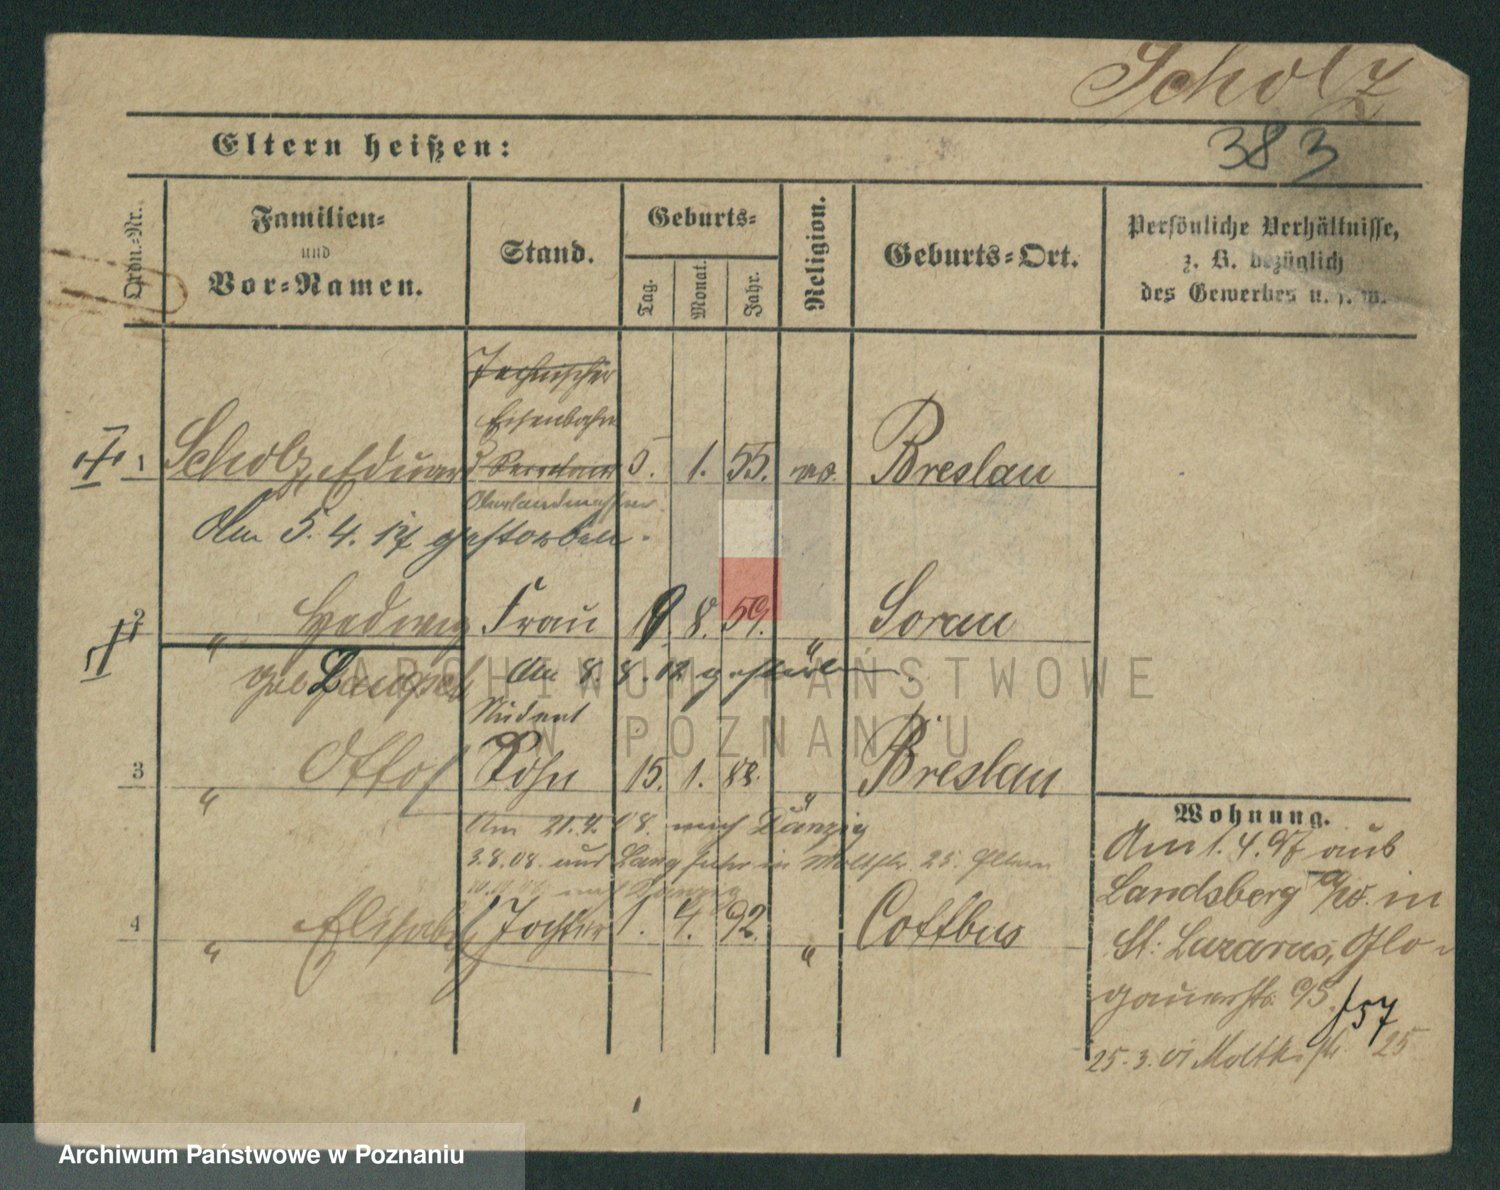 Scholz
383
Eltern heißen:
Ordn.-Nr.
Familien-
und
Vor-Namen.
Stand.
Geburts-
Tag.
Monat.
Jahr.
Religion.
Geburts-Ort.
Persönliche Verhältnisse,
z. B. bezüglich
des Gewerbes u. s. w.
Technischer
Eisenbahn
1 Scholz, Eduard Secretair 5. 1. 55. Breslau
Oberlandmesser
Am 5. 4. 17 gestorben.
2 " Hedwig Frau 8. 59. " Sorau
geb. Am 8. 8. 12 gestorben.
Student
3 " Otto Sohn 15. 1. 88. " Breslau
Am 21. 4. 08. nach Danzig
3.8.08. aus Langfuhr in Moltkestr. 25. Eltern
nach Danzig
4 " Elisabeth Tochter 1. 4. 92. " Cottbus
Wohnung.
Am 1. 4. 97 aus
Landsberg a/W. in
St. Lazarus, Glo-
gauerstr. 95.
57
25.3.01 Moltkestr. 25
ARCHIWUM PAŃSTWOWE
W POZNANIU
Archiwum Państwowe w Poznaniu